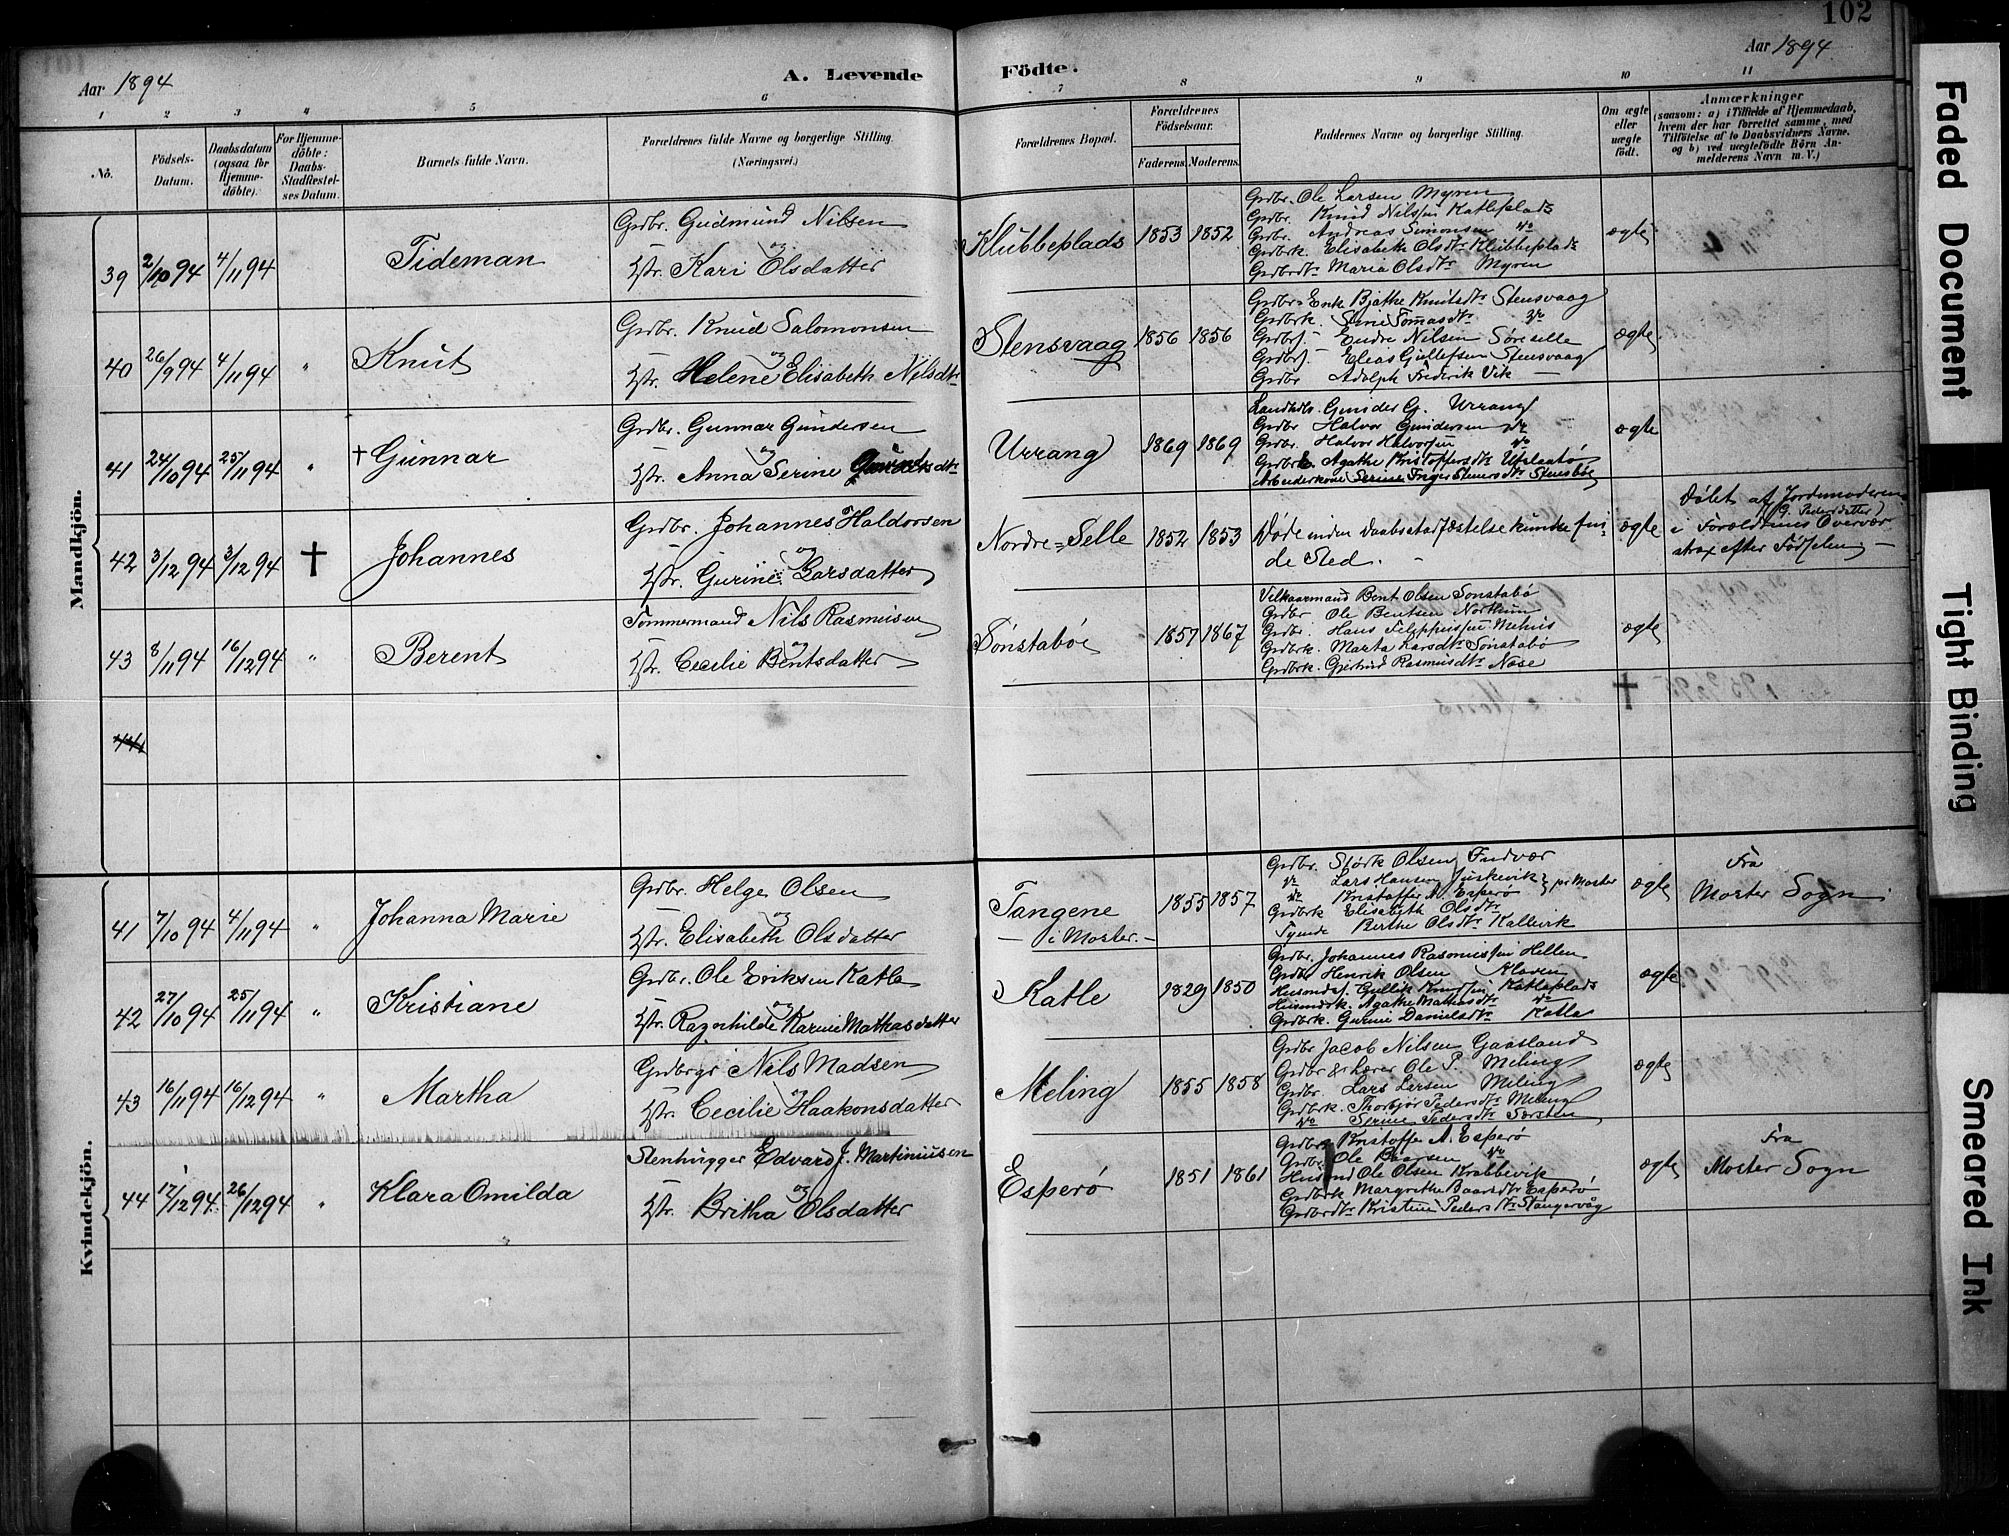 102
Aar 1894
A. Levende
Födte.
Aar 1894
1 2 3 4 5 6 7 8 9 10 11
No.
Födsels-
Datum.
Daabsdatum
(ogsaa for
Hjemme-
döbte).
For Hjemme-
döbte:
Daabs-
Stadfæstel-
ses Datum.
Barnets fulde Navn.
Forældrenes fulde Navne og borgerlige Stilling.
(Næringsvei.)
Forældrenes Bopæl.
Forældrenes
Födselsaar.
Faderens. Moderens.
Faddernes Navne og borgerlige Stilling.
Om ægte
eller
uægte
födt.
Anmærkninger
(saasom: a) i Tilfælde af Hjemmedaab,
hvem der har forrettet samme, med
Tilföielse af to Daabsvidners Navne.
og b) ved uægtefödte Börn An-
melderens Navn m. V.)
Mandkjön.
39 2/10 94 4/11 94
Tideman
Grdbr. Gudmund Nilsen
og
Hstr. Kari Olsdatter
Klubbeplads
1853 1852
Grdbr. Ole Larsen Myren
Grdbr. Knud Nilssen Katleplads
Grdbr. Andreas Simonsen do
Grdbrk. Elisabeth Olsdtr Klubbeplads
Grdbrdtr Maria Olsdtr Myren
ægte
40 26/9 94 4/11 94 "
Knut
Grdbr. Knud Salomonsen
og
Hstr. Helene Elisabeth Nilsdtr
Stensvaag
1856 1856
Grdbr. Enke Bjathe Knutsdtr Stensvaag
Grdbrk. Sine Tomasdtr do
Grdbrs. Endre Nilsen Söreselle
Grdbrs. Elias Gjullefsen Stensvaag
Grdbr Adolph Frederik Vik
ægte
41 24/10 94 25/11 94 "
† Gunnar
Grdbr. Gunnar Gundersen
og
Hstr. Anna Serine
Urrang
1869 1869
Landhdls. Gunder G. Urrang
Grdbr Halvor Gundersen do
Grdbr. Halvor Halvorsen do
Grdbrk. Agathe Kristoffersdtr
Arbeiderkone Serine Inger Stensbøe
ægte
42 3/12 94 3/12 94 †
Johannes
Grdbr. Johannes Haldorsen
og
Hstr. Gurine Larsdatter
Nordre=Selle
1852 1853
Døde inden Daabsstadfæstelse kunde fin-
de Sted.
ægte
Døbt af Jordemoderen
(G. Pedersdatter)
i Forældrenes Overvær
strax efter Fødselen
43 8/11 94 16/12 94 "
Berent
Tømmermand Nils Rasmusen
og
Hstr. Cecilie Bentsdatter
Sønstabøe
1857 1867
Vilkaarmand Bent Olsen Sønstabø
Grdbr. Ole Bentsen Northun
Grdbr. Hans Mehus
Grdbrk. Marta Larsdtr Sønstabø
Grdbrk. Gjertrud Rasmusdtr Nøse
ægte
44
Kvindekjön.
41 7/10 94 4/11 94 "
Johanna Marie
Grdbr. Helge Olsen
og
Hstr. Elisabeth Olsdatter
Tangene
i Moster.
1855 1857
Grdbr. Størk Olsen Indvær
do Lars Hansen Juskevik
do Kristoffer A. Esperø } på Moster
Grdbrk Elisabeth Olsdtr
Tyende Berthe Olsdtr Kallevik
ægte
Fra
Moster Sogn
42 27/10 94 25/11 94 "
Kristiane
Grdbr. Ole Eriksen Katla
og
Hstr. Ragnhilde Karine Mathasdatter
Katle
1829 1850
Grdbr. Johannes Rasmussen Hellen
Grdbr Henrik Olsen Kloven
Husmdsf. Gullik Knudsen Katleplads
Husmdsk. Agathe Mathasdtr do
Grdbrk. Gurine Danielsdtr Katla
ægte
43 16/11 94 16/12 94 "
Martha
Grdbrgr Nils Madsen
og
Hstr. Cecilie Haakonsdatter
Meling
1855 1858
Grdbr Jacob Nilsen Gaasland
Grdbr & Lærer Ole P. Meling
Grdbr. Lars Larsen Meling
Grdbrk. Thorbjør Pedersdtr Meling
do Serine Pedersdtr
ægte
44 17/12 94 26/12 94 "
Klara Omilda
Stenhugger Edvard J. Martiniusen
og
Hstr. Britha Olsdatter
Esperø
1851 1861
Grdbr Kristoffer A. Esperø
Grdbr Ole Baarsen do
Husmd Ole Olsen Krabbevik
Grdbrk Margrethe Baarsdtr Esperø
Grdbrdtr Kristine Pedersdtr Stangervåg
ægte
Fra
Moster Sogn
Faded Document
Tight Binding
Smeared Ink